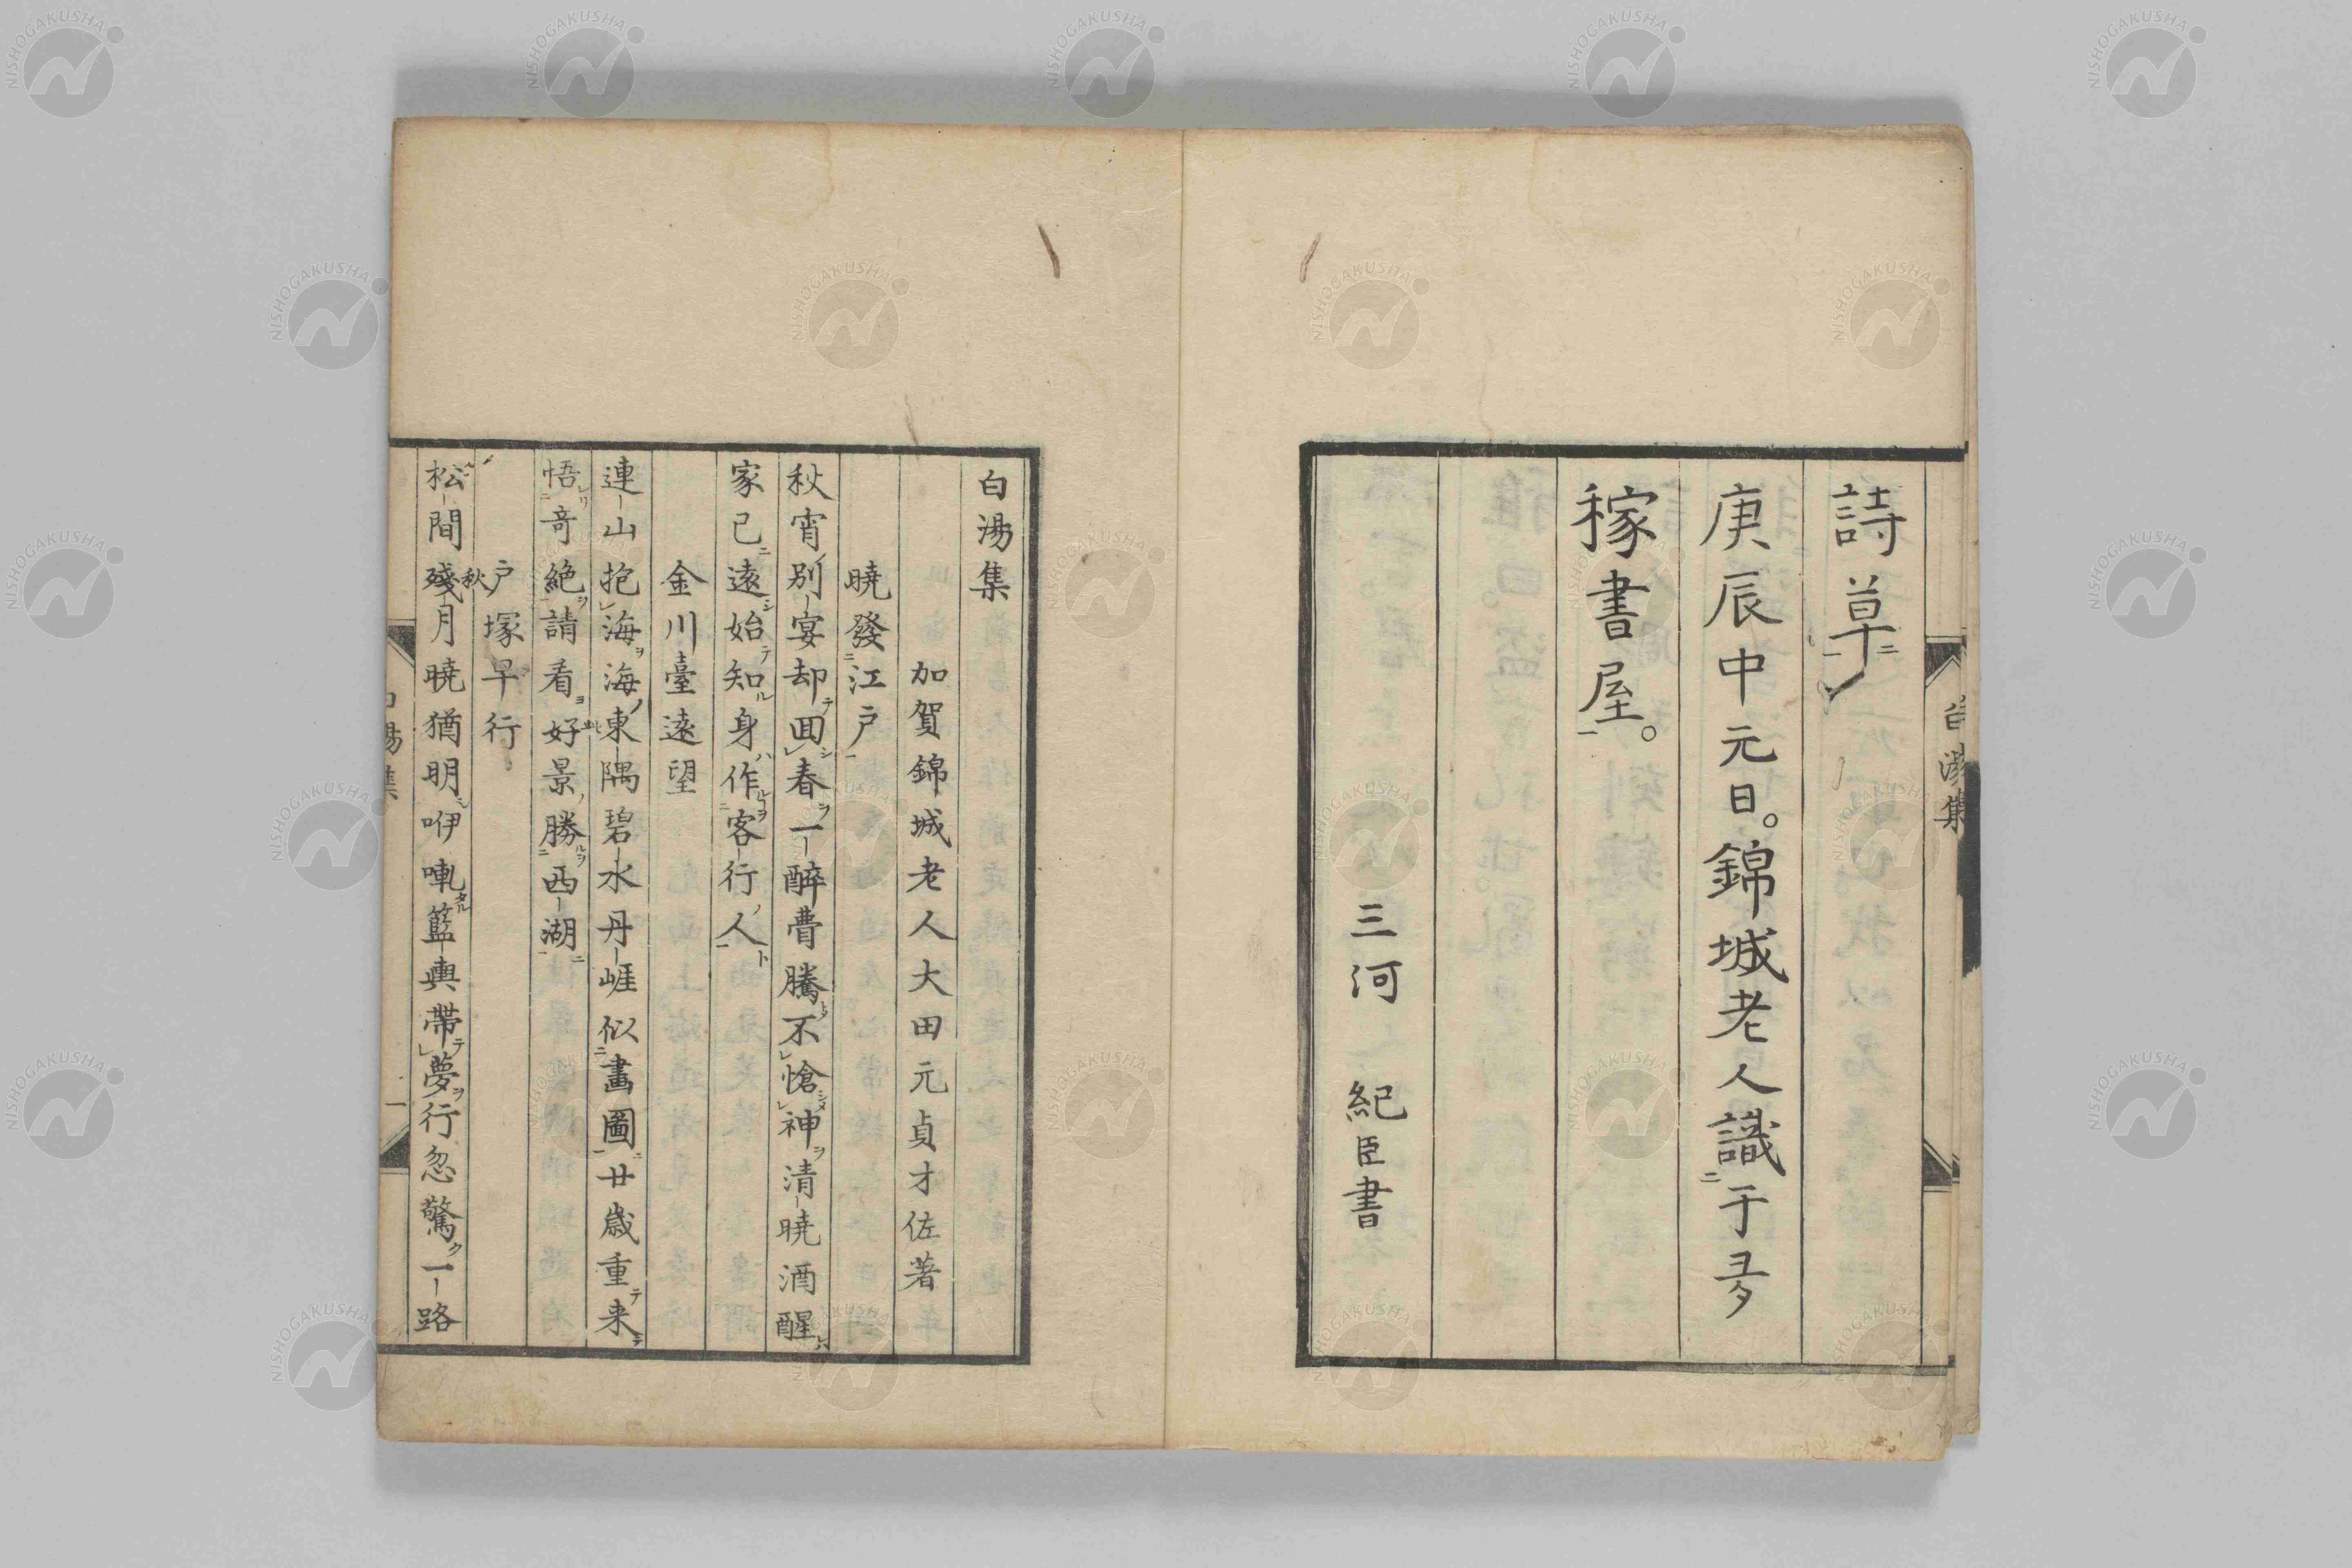 詩草
庚辰中元日。錦城老人識于多
稼書屋。
三河 紀臣書
白湯集
白湯集
加賀錦城老人大田元貞才佐著
曉發江戸
秋宵別宴却回春一醉瞢騰不愴神清曉酒醒
家已遠始知身作客行人
金川臺遠望
連山抱海海東隅碧水丹崕似畫圖廿歳重来
悟竒絶請看好景勝西湖
戸塚早行
松間殘月曉猶明咿喇籃輿帶夢行忽驚一路
秋
白湯集
一
NISHOGAKUSHA